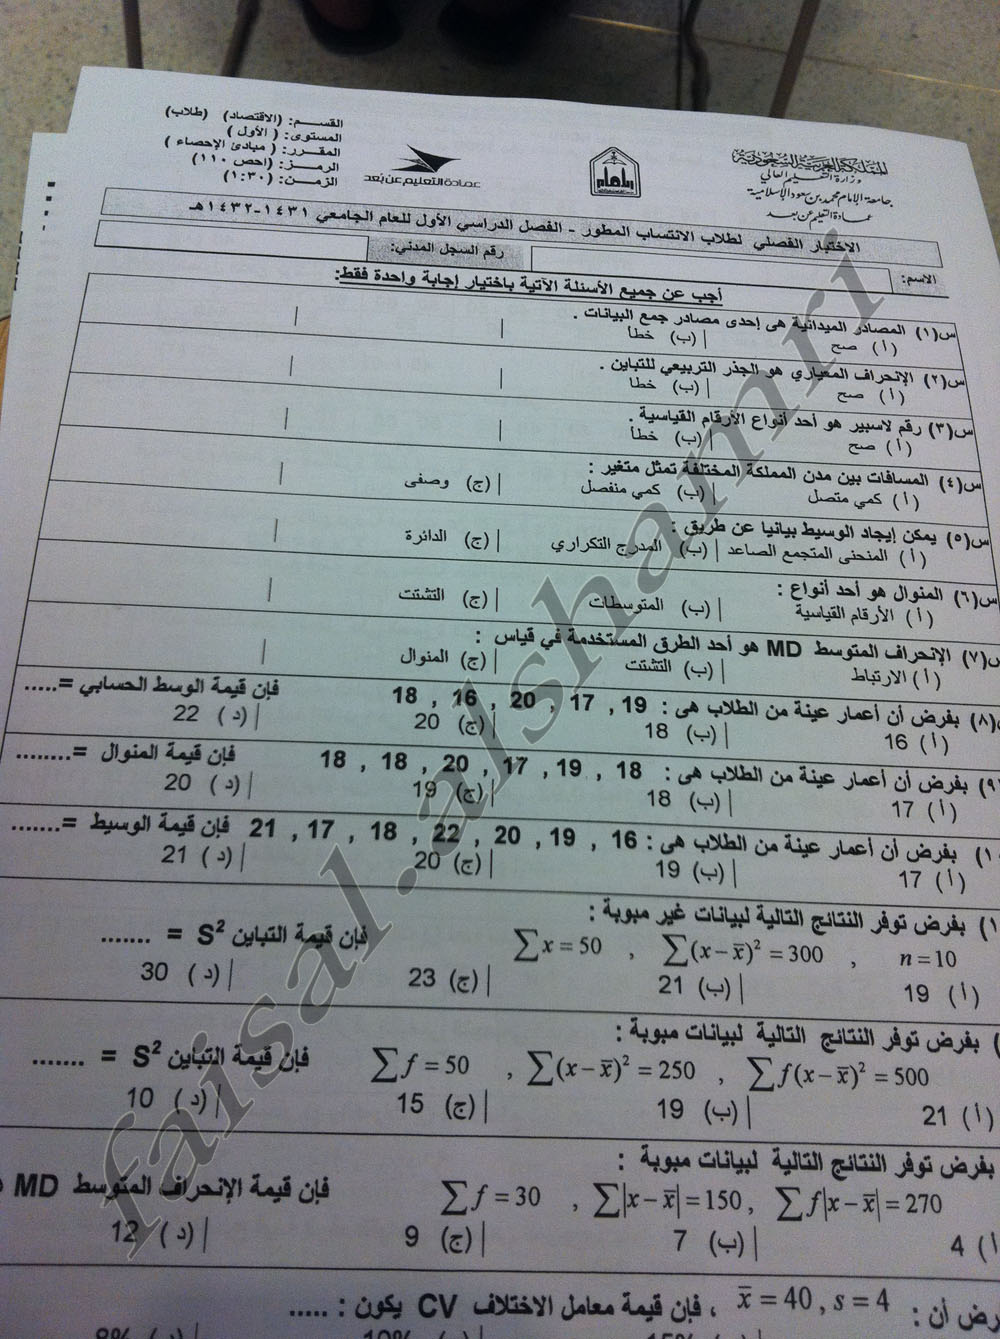 المملكة العربية السعودية
وزارة التعليم العالي
جامعة الإمام محمد بن سعود الإسلامية
عمادة التعليم عن بعد
عمادة التعليم عن بعد
القسم: (الاقتصاد) (طلاب)
المستوى: (الأول)
المقرر: (مبادئ الإحصاء)
الرمز: (احص ١١٠)
الزمن: (١:٣٠)
الاختبار الفصلي لطلاب الانتساب المطور - الفصل الدراسي الأول للعام الجامعي ١٤٣١-١٤٣٢هـ
الاسم: رقم السجل المدني:
أجب عن جميع الأسئلة الآتية باختيار إجابة واحدة فقط:
س(١) المصادر الميدانية هى إحدى مصادر جمع البيانات .
(أ) صح (ب) خطأ
س(٢) الإنحراف المعياري هو الجذر التربيعي للتباين .
(أ) صح (ب) خطا
س(٣) رقم لاسبير هو أحد أنواع الأرقام القياسية .
(أ) صح (ب) خطأ
س(٤) المسافات بين مدن المملكة المختلفة تمثل متغير :
(أ) كمي متصل (ب) كمي منفصل (ج) وصفى
س(٥) يمكن إيجاد الوسيط بيانيا عن طريق :
(أ) المنحنى المتجمع الصاعد (ب) المدرج التكراري (ج) الدائرة
س(٦) المنوال هو أحد أنواع :
(أ) الأرقام القياسية (ب) المتوسطات (ج) التشتت
س(٧) الإنحراف المتوسط MD هو أحد الطرق المستخدمة في قياس :
(أ) الارتباط (ب) التشتت (ج) المنوال
(٨) بفرض أن أعمار عينة من الطلاب هى : 19 , 17 , 20 , 16 , 18 فإن قيمة الوسط الحسابي =.....
(أ) 16 (ب) 18 (ج) 20 (د) 22
٩) بفرض أن أعمار عينة من الطلاب هى : 18 , 19 , 17 , 20 , 18 , 18 فإن قيمة المنوال =........
(أ) 17 (ب) 18 (ج) 19 (د) 20
١) بفرض أن أعمار عينة من الطلاب هى : 16 , 19 , 20 , 22 , 18 , 17 , 21 فإن قيمة الوسيط =.......
(أ) 17 (ب) 19 (ج) 20 (د) 21
١) بفرض توفر النتائج التالية لبيانات غير مبوبة :
n = 10 , ∑(x − x̅)² = 300 , ∑x = 50 فإن قيمة التباين S² = .......
(أ) 19 (ب) 21 (ج) 23 (د) 30
) بفرض توفر النتائج التالية لبيانات مبوبة :
∑f(x − x̅)² = 500 , ∑(x − x̅)² = 250 , ∑f = 50 فإن قيمة التباين S² = .......
(أ) 21 (ب) 19 (ج) 15 (د) 10
بفرض توفر النتائج التالية لبيانات مبوبة :
∑f|x − x̅| = 270 , ∑|x − x̅| = 150 , ∑f = 30 فإن قيمة الإنحراف المتوسط MD
أ) 4 (ب) 7 (ج) 9 (د) 12
رض أن : x̅ = 40 , s = 4 ، فإن قيمة معامل الاختلاف CV يكون : .....
faisal.alshamri